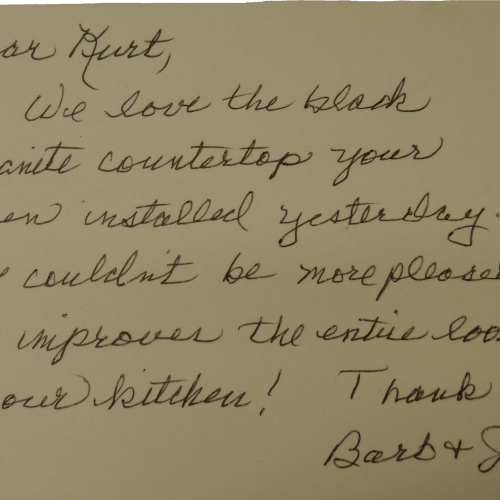 ar Kurt,
We love the black
anite countertop your
en installed yesterday.
couldn't be more pleased
improves the entire loo
our kitchen! Thank
Barb + J